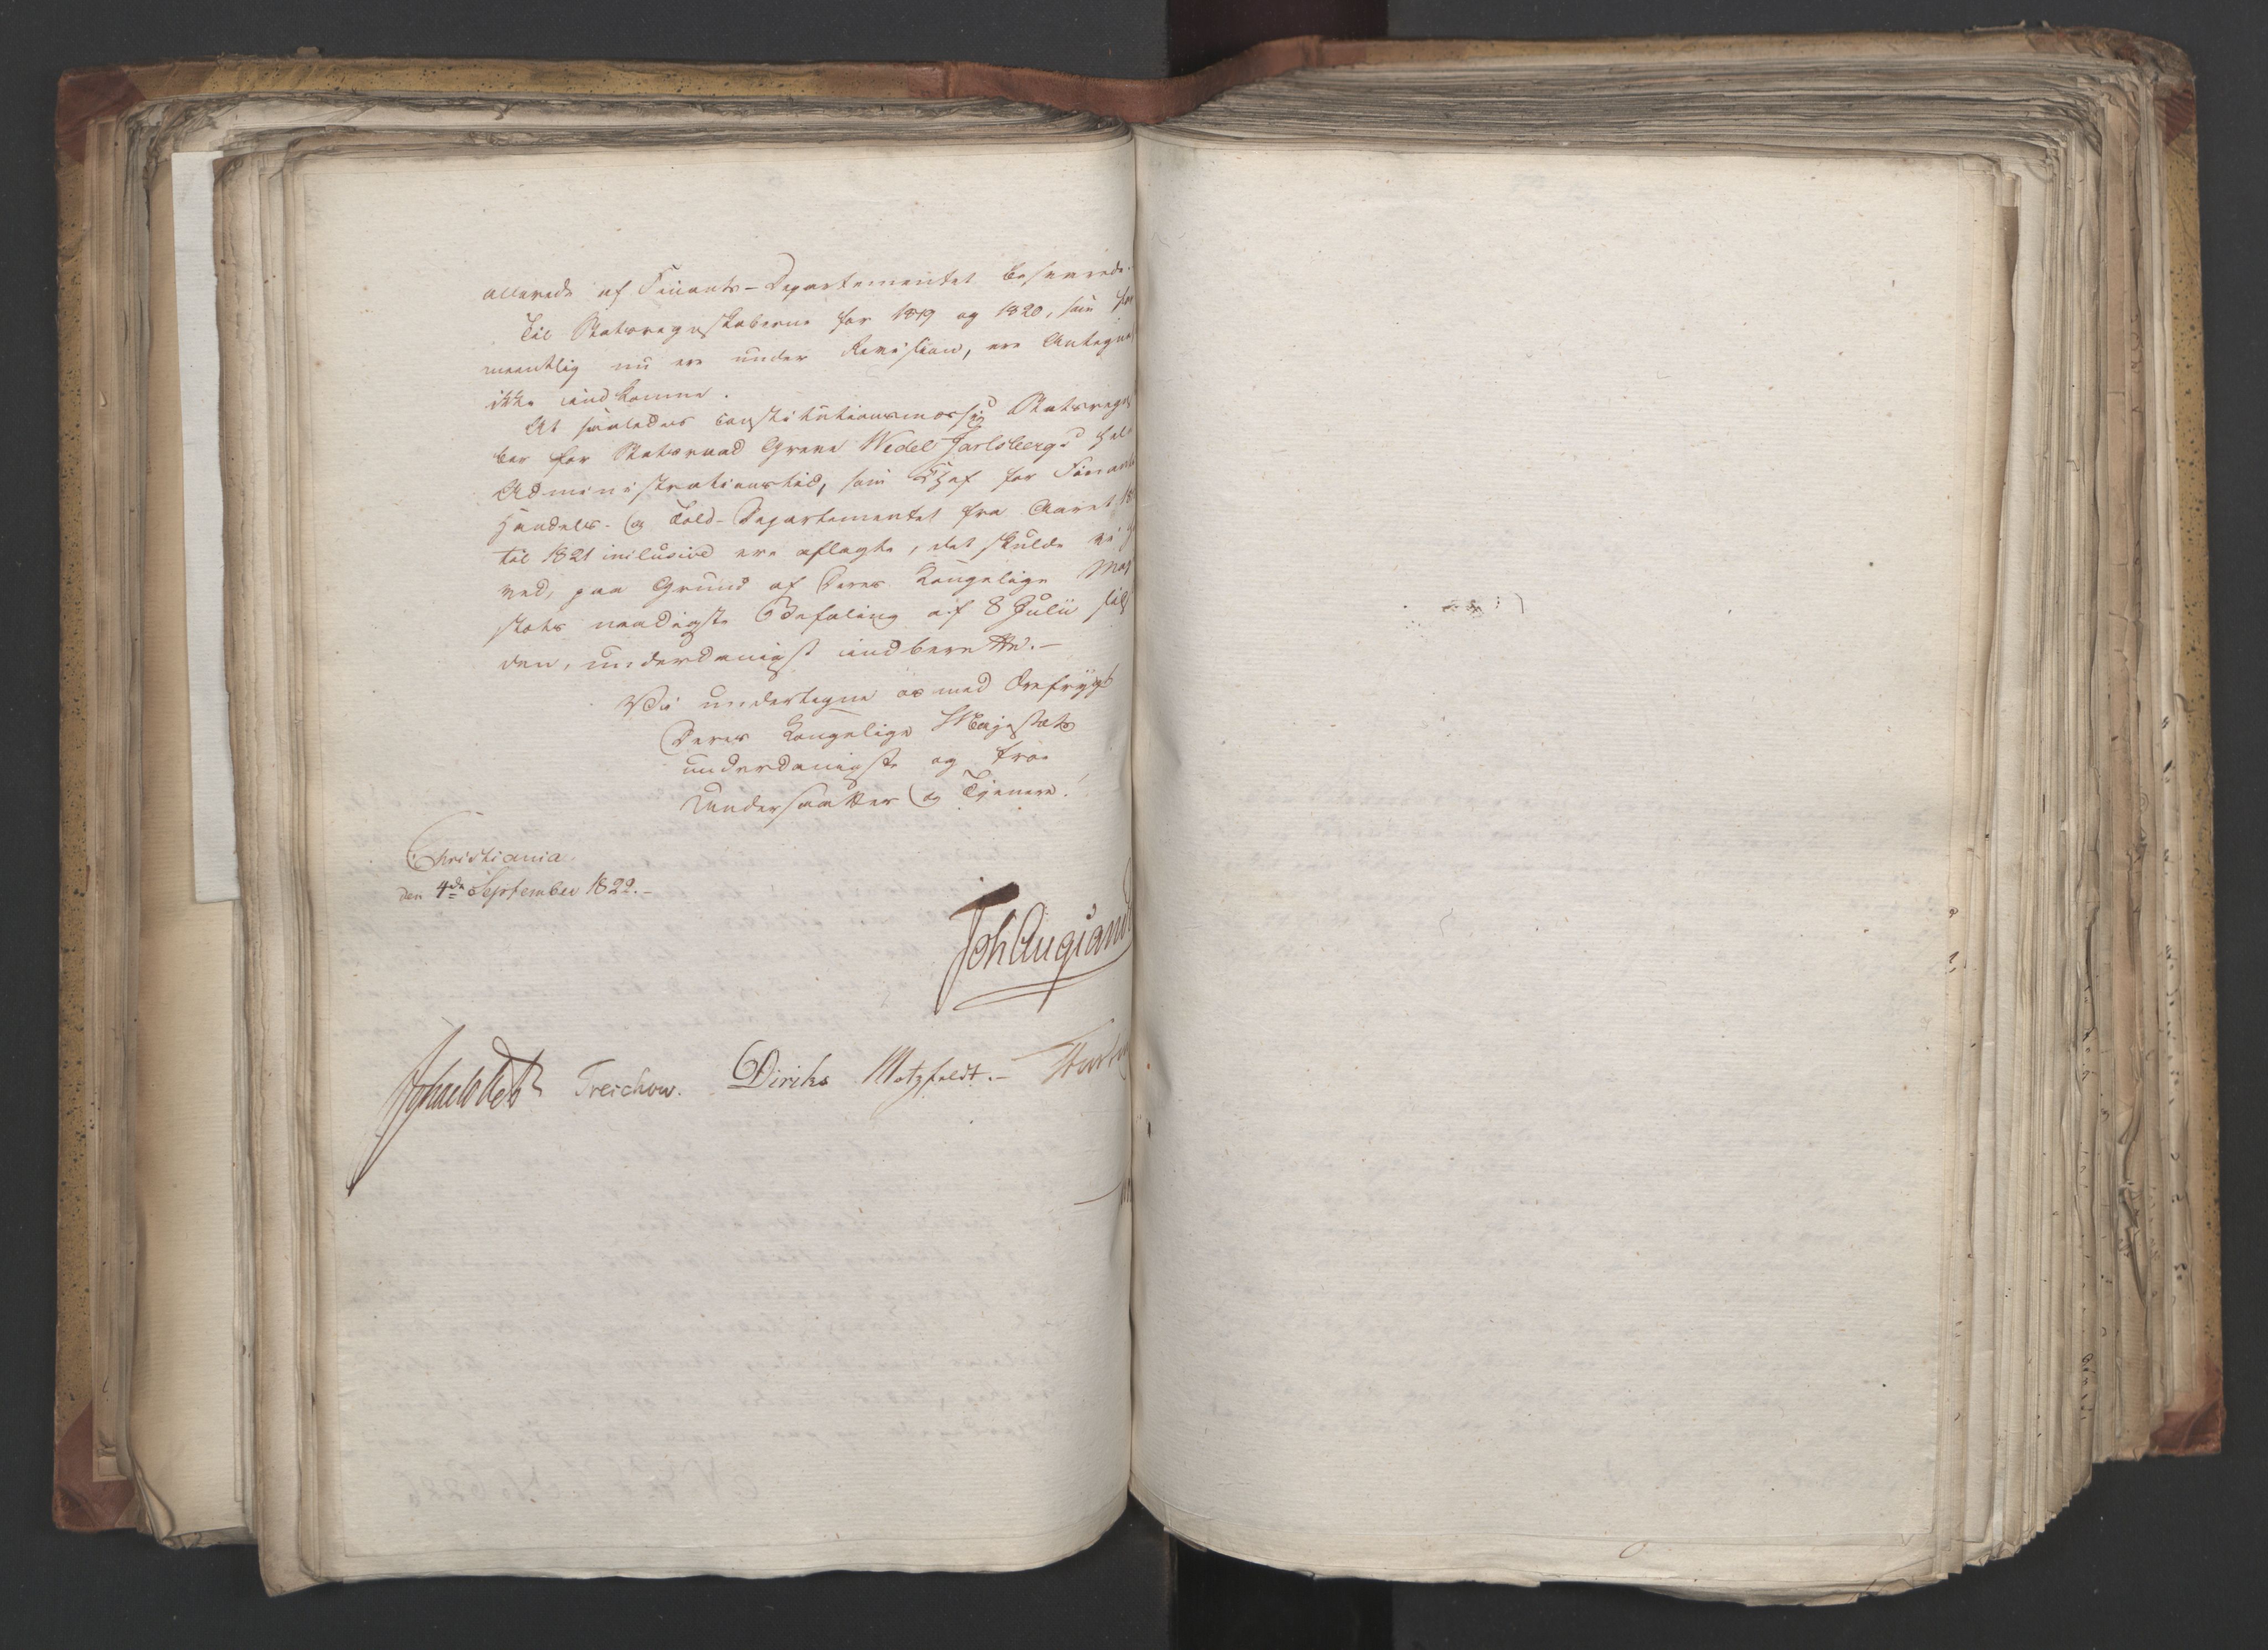 allerede af Finants-Departementet besvarede.
Til Statsregnskaberne for 1819 og 1820, som for
mentlig nu ere under Revision, ere Antegnel
ikke indkomne.
At saaledes constitutionsmæssig Statsregns
ber for Statsraad Greve Wedel Jarlsbergs hele
Administrationstid, som Chef for Finants
Handels- og Told-Departementet fra Aaret 18
til 1821 inclusive ere aflagte, det skulde vi h
ved, paa Grund af Deres Kongelige Maj
stæts naadigste Befaling af 8 Julii sids
den, underdanigst indberette.-
Vi undertegne os med Ærefrygt
Deres Kongelige Majestæts
underdanigste og troe
Undersaatter og Tjenere.
Christiania
den 4de September 1822.-
Joh Aug Sand
Treschow. Diriks Motzfeldt.-